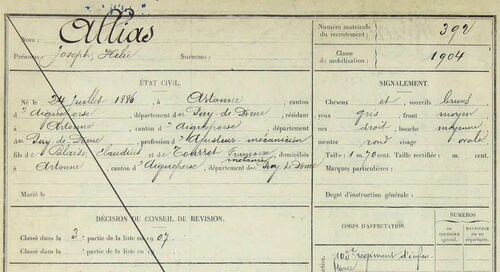 Nom : Allias
Prénoms : Joseph, Hélie Surnoms :
Numéro matricule du recrutement : 392
Classe de mobilisation : 1904
ÉTAT CIVIL.
Né le 24 juillet 1886, à Artonne, canton
d'Aigueperse, département du Puy-de-Dôme, résidant
à Artonne, canton d'Aigueperse, département
du Puy-de-Dôme, profession d'ajusteur-mécanicien
fils de Blaise, Claudius et de Tourret Françoise, domiciliés
Artonne, canton d'Aigueperse, département du Puy de Dôme
Marié le
DÉCISION DU CONSEIL DE REVISION.
Classé dans la 3e partie de la liste en 1907.
Classé dans la partie de la liste en 19
SIGNALEMENT.
Cheveux et sourcils bruns
yeux gris, front moyen
nez droit, bouche moyenne
menton rond visage ovale
Taille : 1m. 70 cent. Taille rectifiée : m. cent.
Marques particulières :
Degré d'instruction générale :
CORPS D'AFFECTATION.
NUMÉROS
105e régiment d'infan-
terie